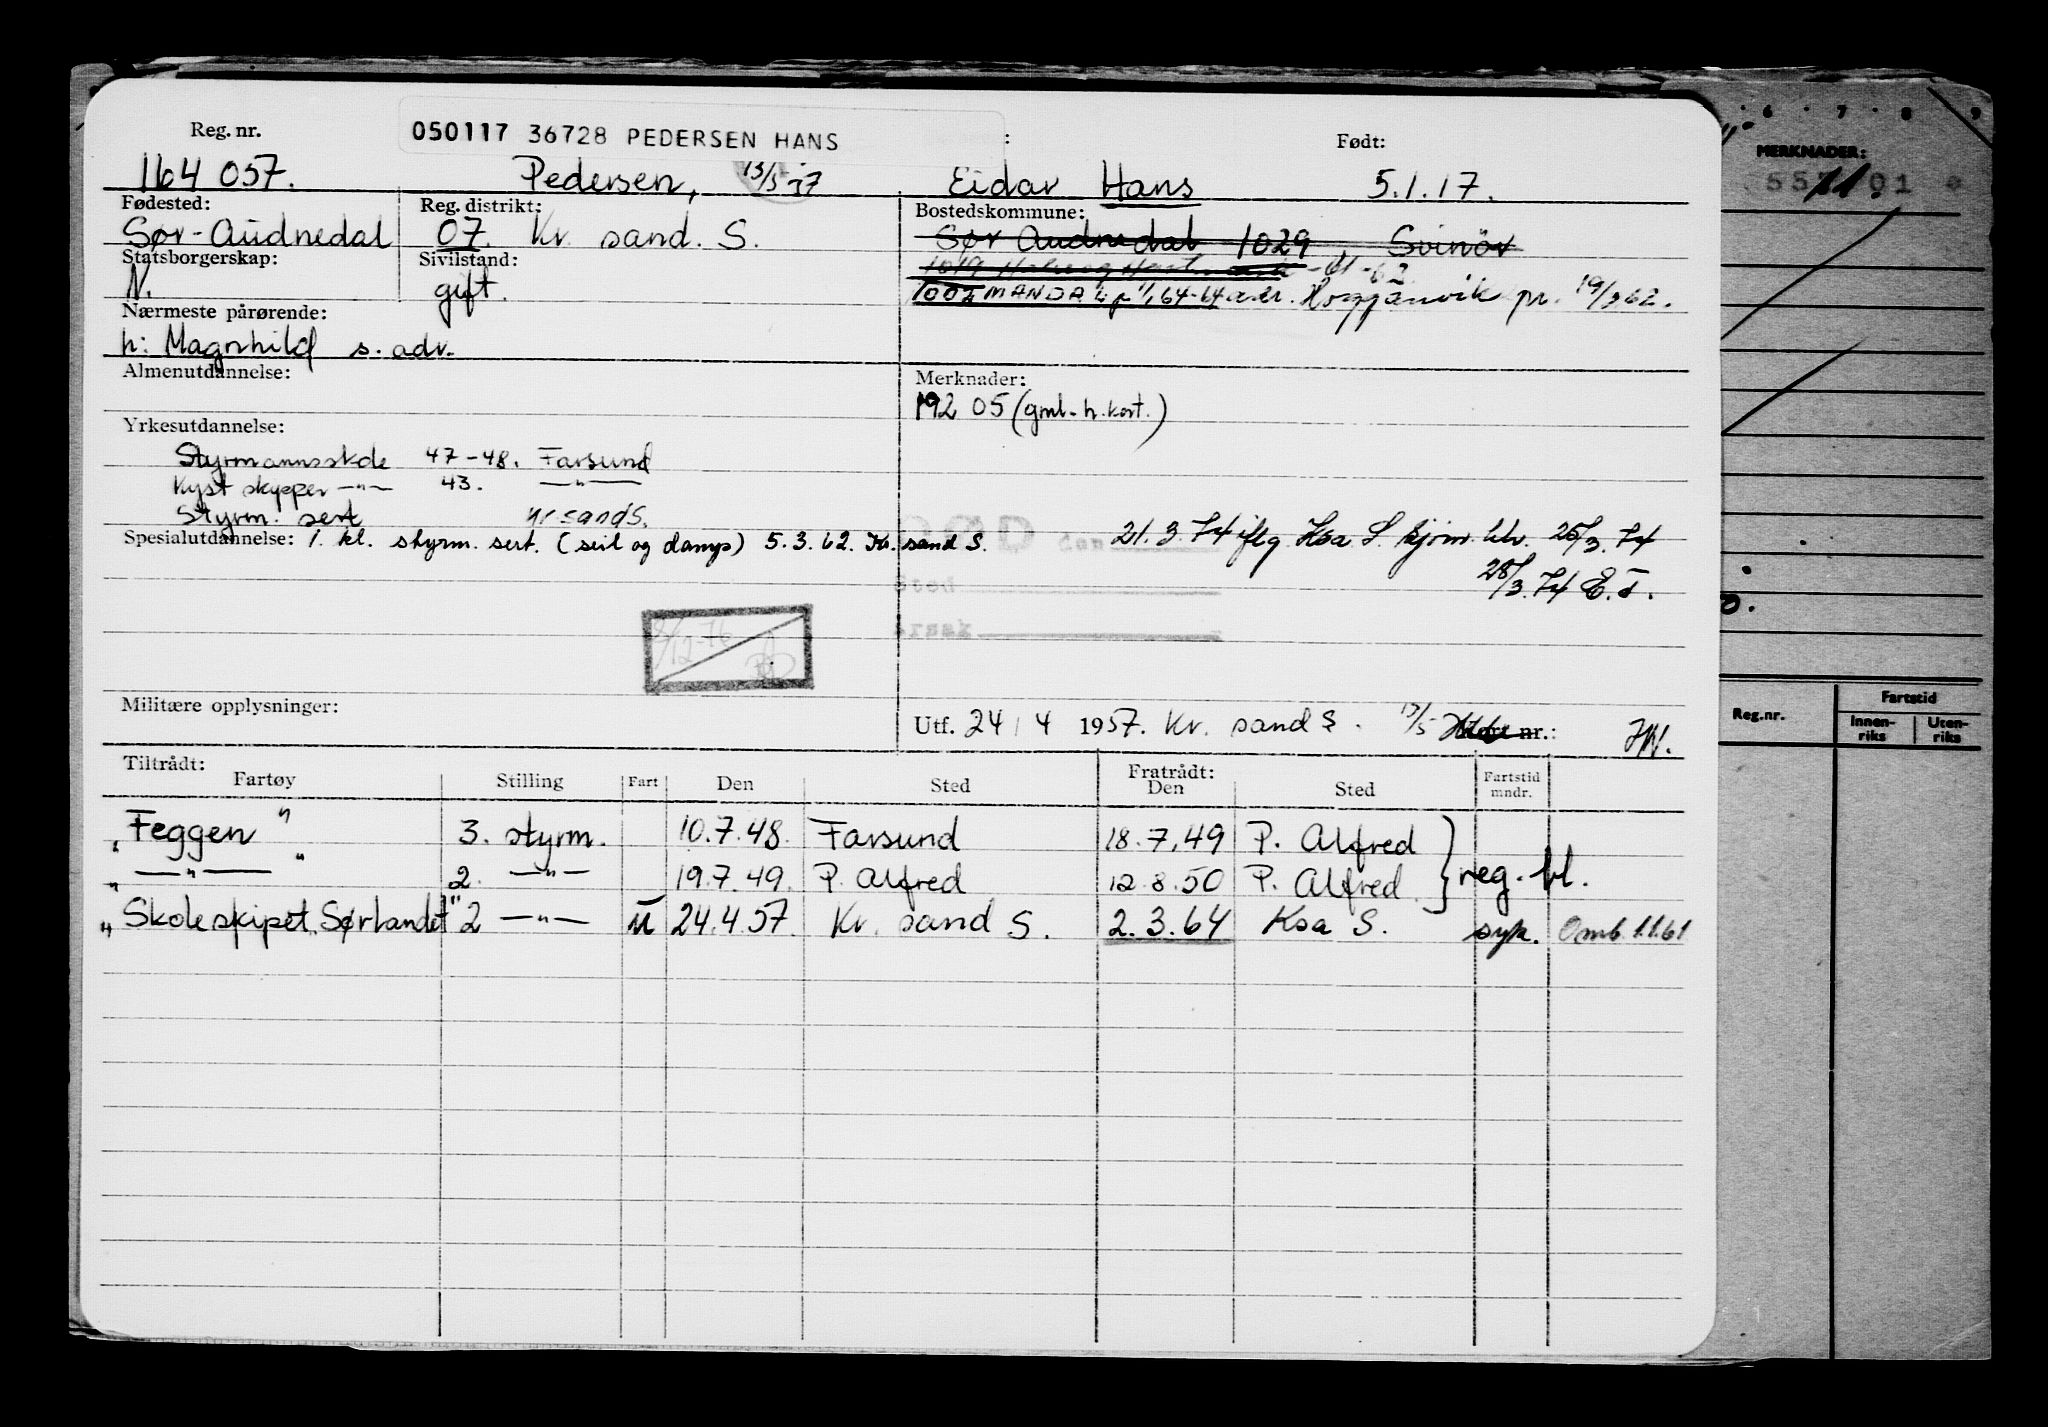 Reg. nr.
050117 36728 PEDERSEN HANS
:
Født:
164 057.
Pedersen,
Eidar Hans
5.1.17.
Fødested:
Reg. distrikt:
Bostedskommune:
Sør-Audnedal
07. Kr. sand. S.
Sør Audnedal 1029, Svinör
Statsborgerskap:
Sivilstand:
1019 -61-62
N.
gift.
1002 MANDAL
pr. 19/3 62.
Nærmeste pårørende:
h: Magnhild s. adr.
Almenutdannelse:
Merknader:
192 05 (gml. h. kort.)
Yrkesutdannelse:
Styrmannsskole 47-48. Farsund
Kyst skypper —"— 43. —"—
Styrm. sert Kr sand S.
Spesialutdannelse: 1. kl. styrm. sert. (seil og damp) 5.3.62. Kr. sand S.
21.3.74 iflg. Ksa S. 26/3.74
28/3.74 E.T.
Militære opplysninger:
Utf. 24 / 4 1957. Kr. sand S. 13/5 nr.:
Tiltrådt:
Fartøy
Stilling
Fart
Den
Sted
Fratrådt:
Den
Sted
Fartstid
mndr.
"Feggen" 3. styrm. 10.7.48. Farsund 18.7.49 P. Alfred
" —"— " 2. —"— 19.7.49. P. Alfred 12.8.50 P. Alfred } reg. bl.
"Skoleskipet Sørlandet" 2 —"— u 24.4.57. Kr. sand S. 2.3.64 Ksa S. syk. Omb. 1.1.61
6 · 7 · 8 9
MERKNADER:
Reg.nr.
Fartstid
Innen-
riks
Uten-
riks